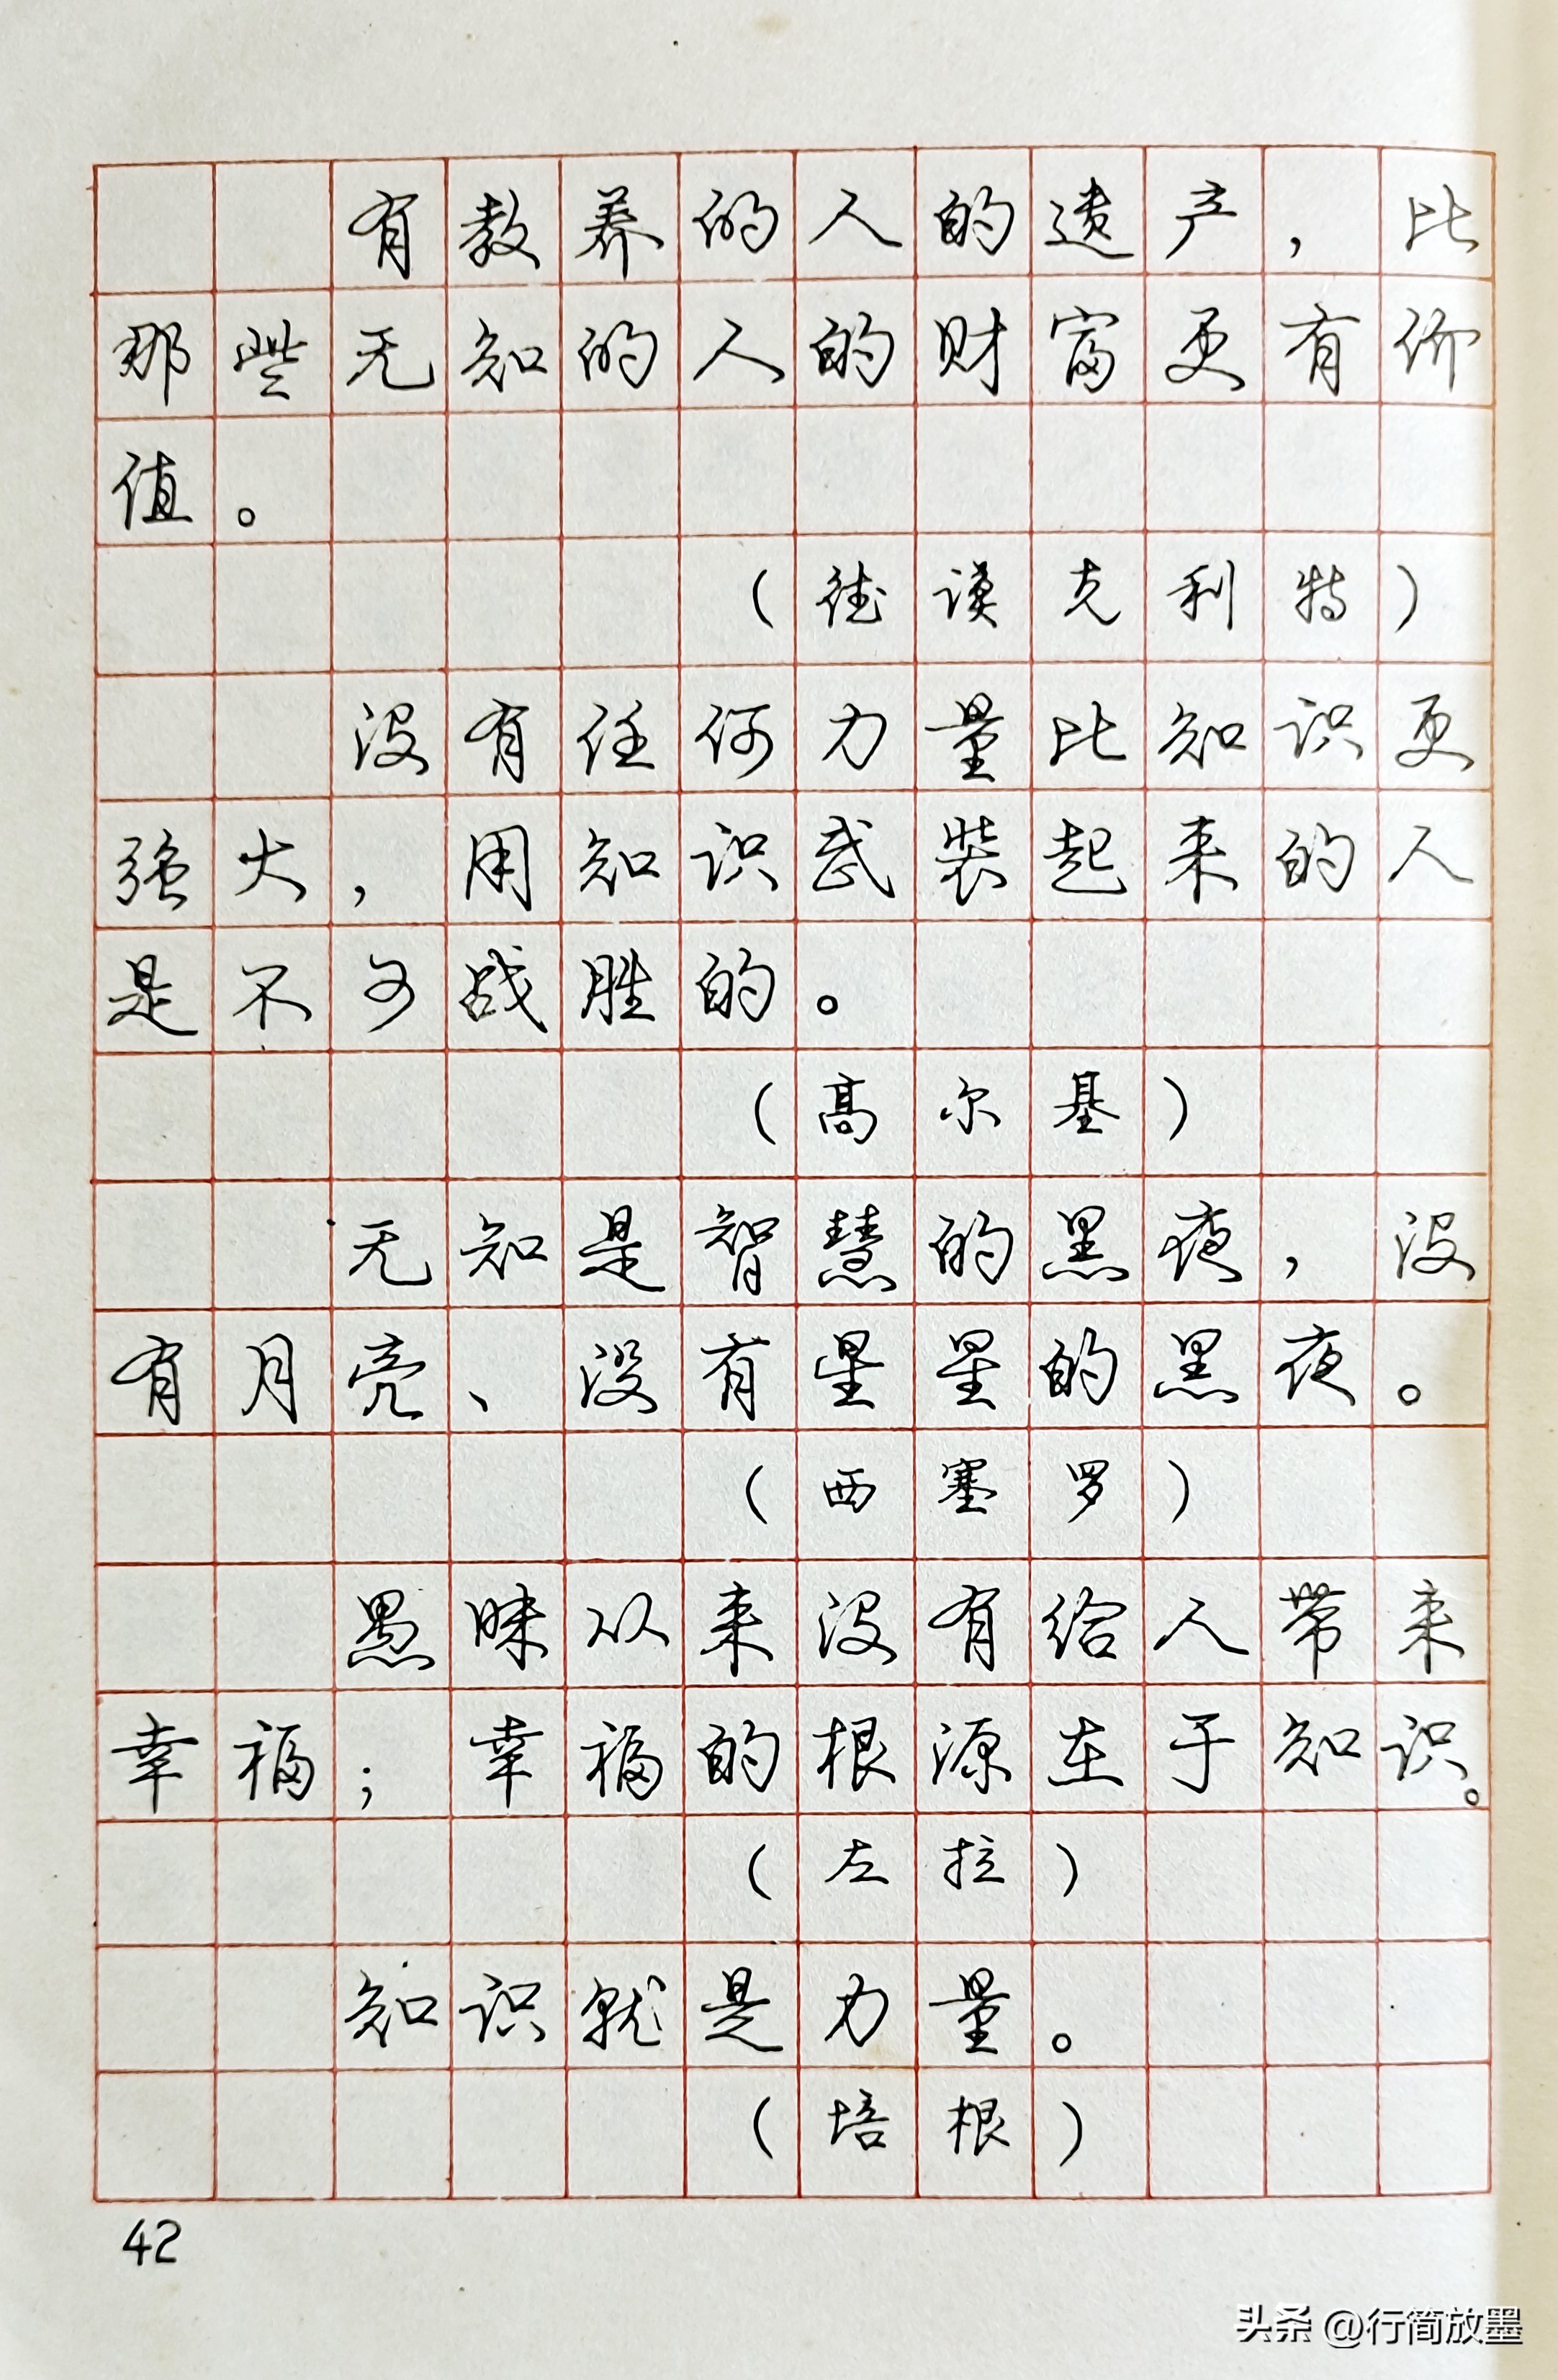 有教养的人的遗产，比
那些无知的人的财富更有价
值。
（德谟克利特）
没有任何力量比知识更
强大，用知识武装起来的人
是不可战胜的。
（高尔基）
无知是智慧的黑夜，没
有月亮、没有星星的黑夜。
（西塞罗）
愚昧从来没有给人带来
幸福；幸福的根源在于知识。
（左拉）
知识就是力量。
（培根）
42
头条 @行简放墨